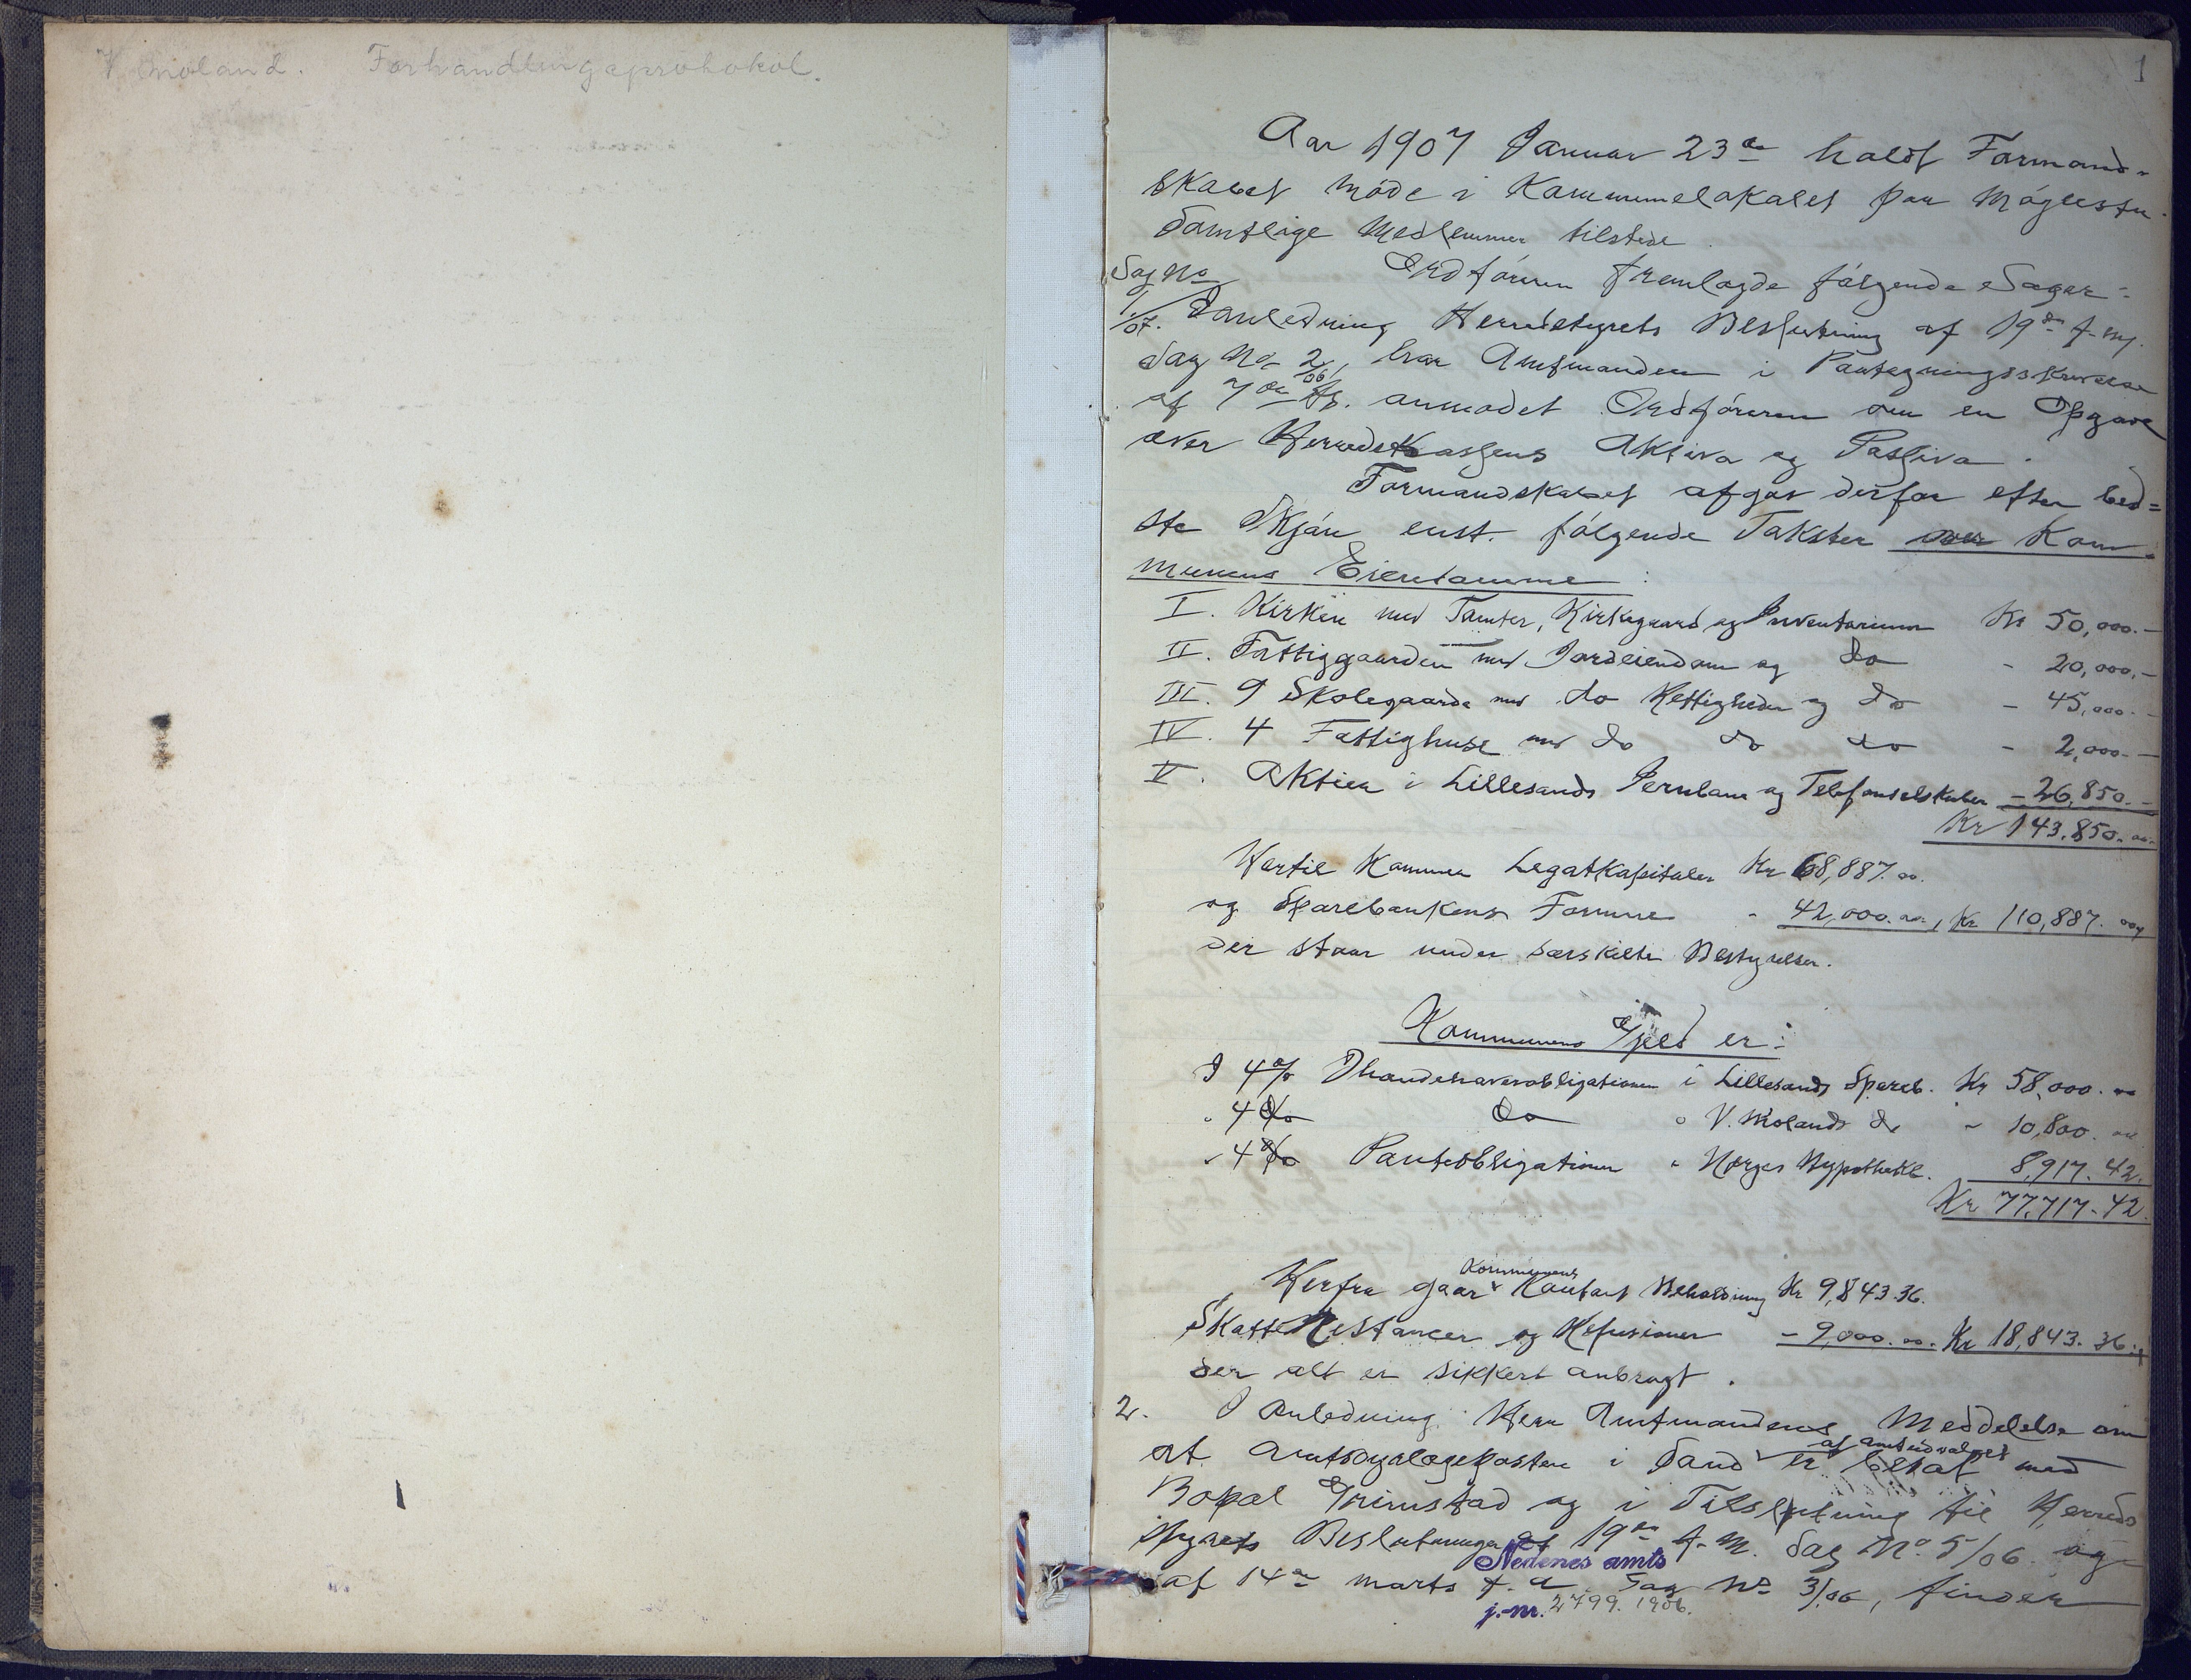 V. Moland. Forhandlingsprotokol.
1
Aar 1907 Januar 23de holdt Formand-
skabet Møde i Kommunelokalet paa Møglestu.
Samtlige Medlemmer tilstede.
Sag No Ordføreren fremlagde følgende Sager:
1/07. I Anledning Herredstyrets Beslutning af 19de f. m.
Sag No 2/06, har Amtmanden i Paategningsskrivelse
af 7de ds. anmodet Ordføreren om en Opgave
over Herredskassens Aktiva og Passiva.
Formandskabet afgav derfor efter bed=
ste Skjøn enst. følgende Takster over Kom-
munens Eiendomme:
I. Kirken med Tomter, Kirkegaard og Inventarium Kr 50,000.-
II. Fattiggaarden med Jordeiendom og do - 20,000.-
III. 9 Skolegaarde med do Rettigheder og do - 45,000.-
IV. 4 Fattighuse med do do do - 2,000.-
V. Aktier i Lillesands Jernbane og Telefonselskaber - 26,850.-
Kr 143.850.00
Hertil kommer Legatkapitaler Kr 68,887.00.
og Sparebankens Formue - 42,000.00, Kr 110,887.00,
der staar under særskilte Bestyrelser.
Kommunens Gjeld er:
I 4% Ihændehaverobligationer i Lillesands Spareb. Kr 58,000.00
" 4% do " V. Molands do - 10,800.00
" 4% Panteobligationer " Norges Hypothekb. 8,917.42.
Kr 77,717.42.
Kommunens
Herfra gaar Kontant Beholdning Kr 9,843.36.
Skatterestancer og Refusioner - 9,000.00. Kr 18,843.36.
der alt er sikkert anbragt.
2. I Anledning Herr Amtmandens Meddelelse om
af amtsudvalget
at Amtsdyrlægeposten i Sand er besat med
Bopæl Grimstad og i Tilslutning til Herreds
styrets Beslutninger af 19de f. M. Sag No 5/06. og
Nedenes amts
af 14de marts f. a. Sag No 3/06, finder
j.-nr. 2799. 1906.